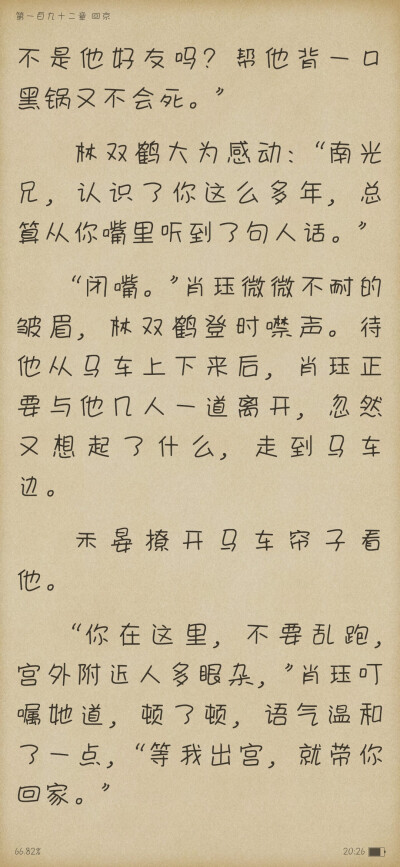 第一百九十二章 回京
不是他好友吗？帮他背一口
黑锅又不会死。”
林双鹤大为感动：“南光
兄，认识了你这么多年，总
算从你嘴里听到了句人话。”
“闭嘴。”肖珏微微不耐的
皱眉，林双鹤登时噤声。待
他从马车上下来后，肖珏正
要与他几人一道离开，忽然
又想起了什么，走到马车
边。
禾晏撩开马车帘子看
他。
“你在这里，不要乱跑，
宫外附近人多眼杂，”肖珏叮
嘱她道，顿了顿，语气温和
了一点，“等我出宫，就带你
回家。”
66.82%
20:26